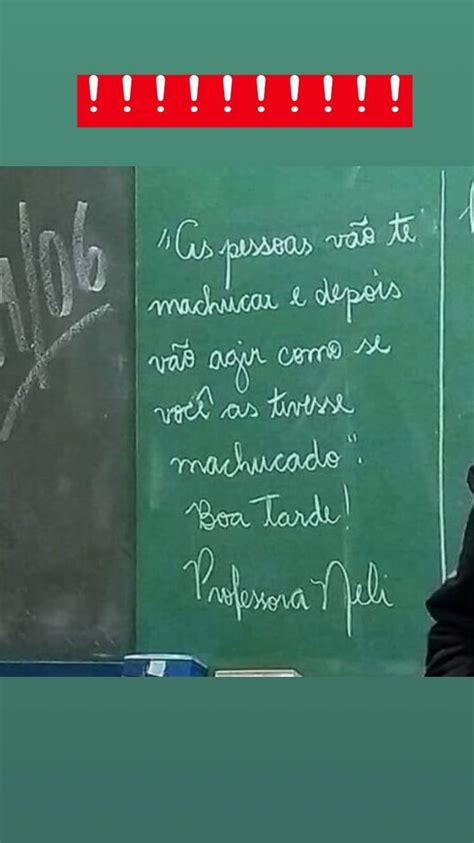 ! ! ! ! ! ! ! ! ! !
/06
"As pessoas vão te
machucar e depois
vão agir como se
você as tivesse
machucado".
Boa Tarde!
Professora Neli